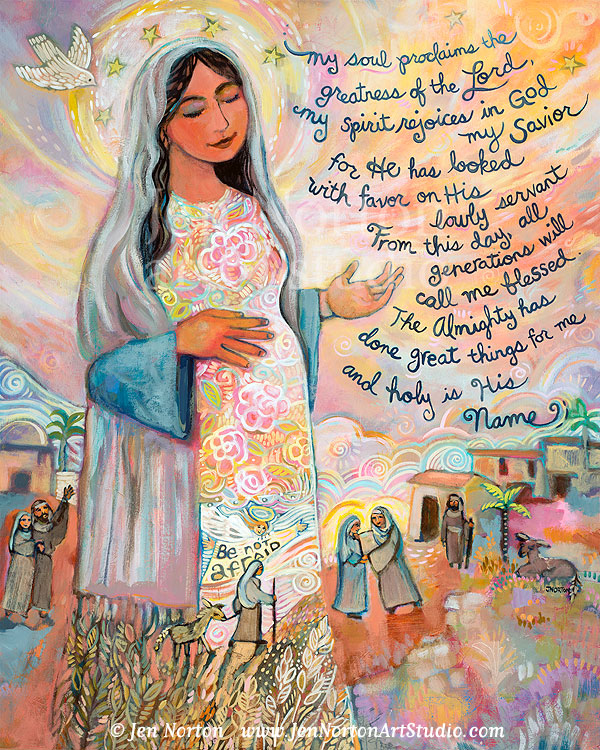 my soul proclaims the
greatness of the Lord,
my spirit rejoices in God
my Savior
for He has looked
with favor on His
lowly servant
From this day, all
generations will
call me blessed.
The Almighty has
done great things for me
and holy is His
Name
Be not
afraid
JNORTON
© Jen Norton www.JenNortonArtStudio.com